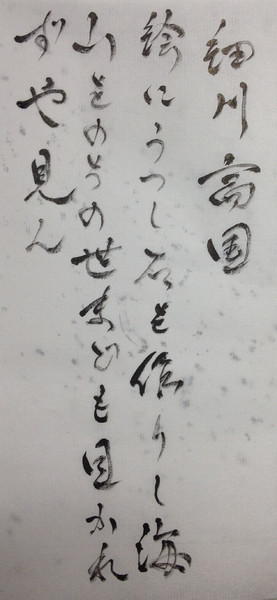 細川高国
絵にうつし石を作りし海
山をのちの世までも目かれ
ずや見ん